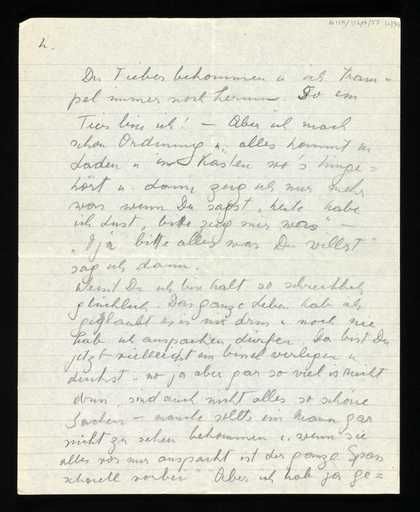 4.
Du Lieber bekommen u. ich tram=
pel immer noch herum. So ein
Tier bin ich! – Aber ich mach
schon Ordnung u. alles kommt in
Laden u. Kasten wo's hinge=
hört u. dann zeig ich nur mehr
was wenn Du sagst "heute habe
ich Lust, bitte zeig mir was" –
"Ja bitte alles was Du willst"
sag ich dann.
Weisst Du ich bin halt so schrecklich
glücklich. Das ganze Leben hab ich
geglaubt es is was drin u. noch nie
hab ich auspacken dürfen. Da bist Du
jetzt vielleicht ein bissel verlegen u.
denkst – no ja aber gar so viel is nicht
drin, sind auch nicht alles so schöne
Sachen – manche sollte ein Mann gar
nicht zu sehen bekommen u. wenn sie
alles vor mir auspackt ist der ganze Spass
schnell vorbei" Aber ich hab ja ge=